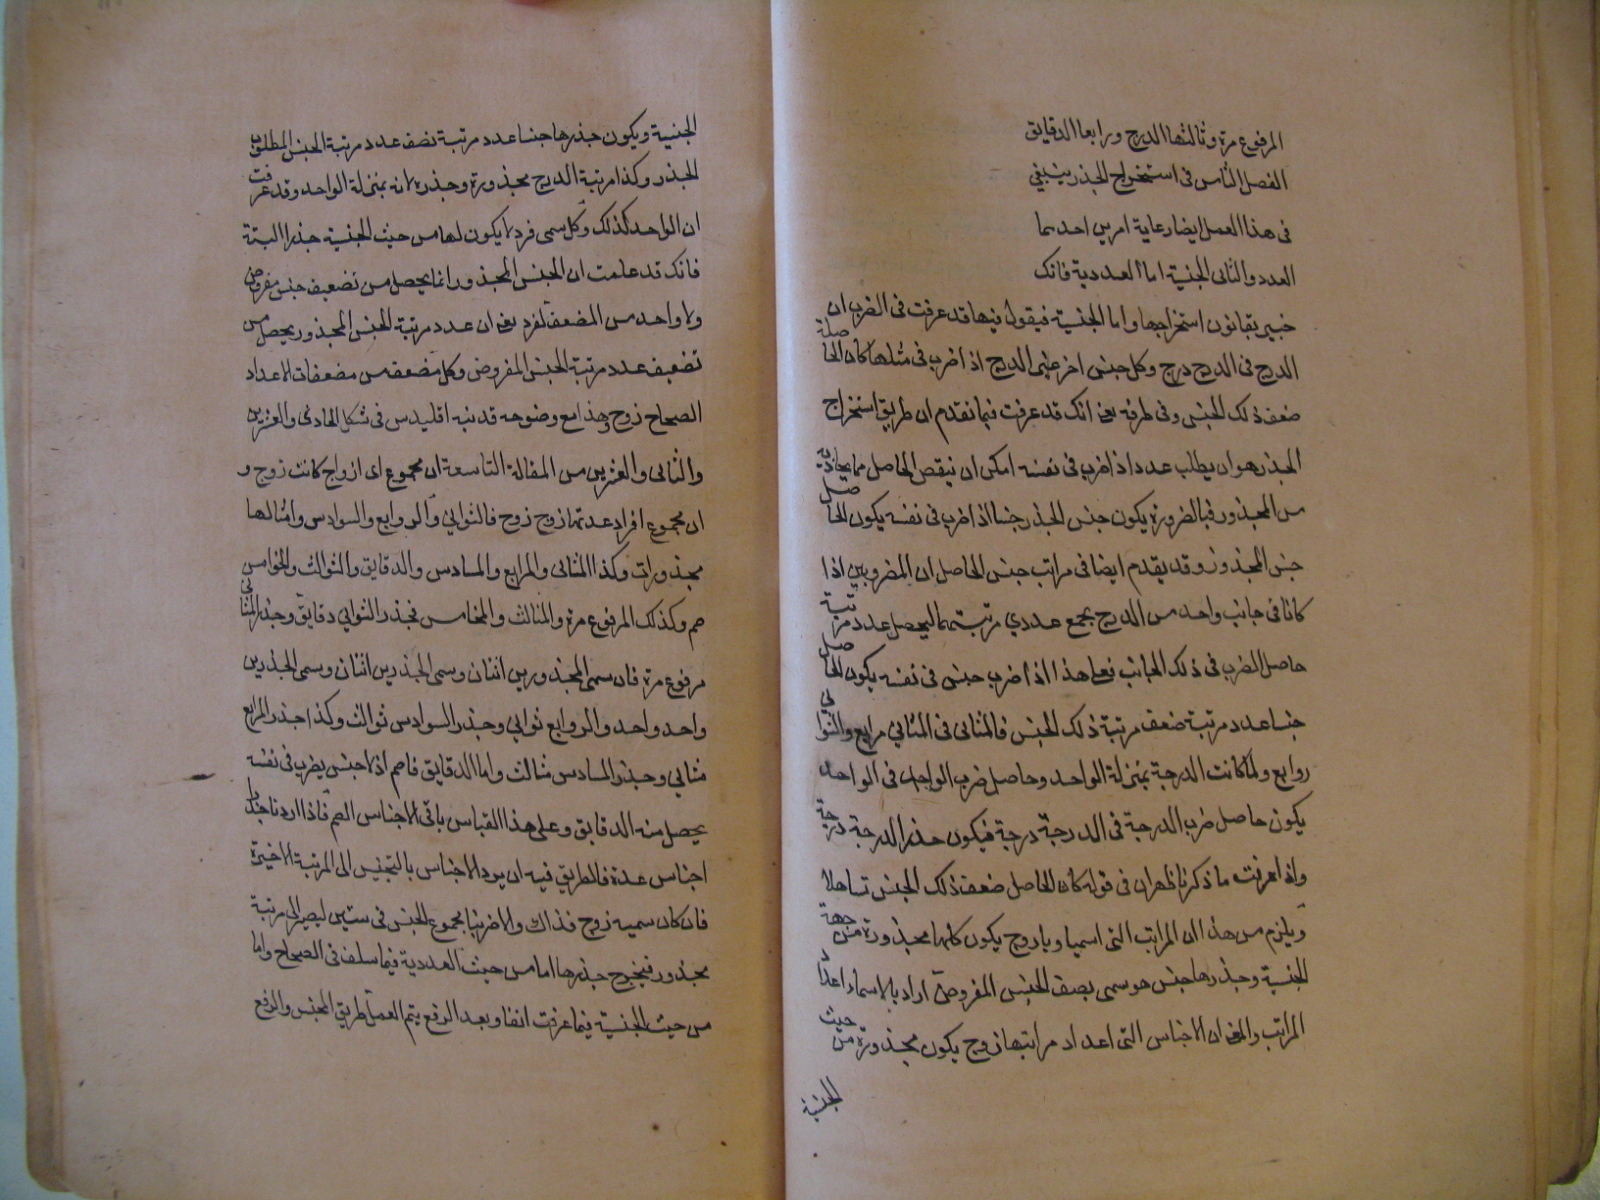 المرفوع مرة وثالثها الدرج ورابعا الدقايق
الفصل الثامن فى استخراج الجذر ينبغي
فى هذا العمل ايضا رعاية امرين احدهما
العدد والثانى الجنسية اما العددية فانك
خبير بقانون استخراجها واما الجنسية فيقول فيها قد عرفت فى الضرب ان
الدرج فى الدرج درج وكل جنس اخر غير الدرج اذا ضرب فى مثلها كان الحاصلة
ضعف ذلك الجنس وفى طرفه يعنى انك قد عرفت فيما تقدم ان طريق استخراج
الجذر هو ان يطلب عددا اذا ضرب فى نفسه امكن ان ينقص الحاصل مما يحاذيه
من المجذور فبالضرورة يكون جنس الجذر جنسا اذا ضرب فى نفسه يكون الحاصل
جنس المجذور وقد يقدم ايضا فى مراتب جنس الحاصل ان المضروبين اذا
كانا فى جانب واحد من الدرج يجمع عددي مرتبتهما ليحصل عدد مرتبة
حاصل الضرب فى ذلك الجانب فعلى هذا اذا ضرب جنس فى نفسه يكون الحاصل
جنسا عدد مرتبة ضعف مرتبة ذلك الجنس فالمثانى فى المثاني مرابع والثوانى
روابع ولما كانت الدرجة بمنزلة الواحد وحاصل ضرب الواحد فى الواحد
يكون حاصل ضرب الدرجة فى الدرجة درجة فيكون جذر الدرجة درجة
واذا عرفت ما ذكرنا ظهر ان فى قوله كان الحاصل ضعف ذلك الجنس تساهلا
ويلزم من هذا ان المراتب التى اسمياوها زوج يكون كلها مجذورة من جهة
الجنسية وجذرها جنس هو سمى بصف الجنس المفروض اراد بالاسماء اعداد
المراتب والمعنى ان الاجناس التى اعداد مراتبها زوج يكون مجذورة من حيث
الجنسية
الجنسية ويكون جذرها جنسا عدد مرتبة نصف عدد مرتبة الجنس المطلوب
الجذر وكذا مرتبة الدرج مجذورة وجذره لانه بمنزلة الواحد وقد عرفت
ان الواحد كذلك وكل سمى فرد لا يكون لها من حيث الجنسية جذر البتة
فانك قد علمت ان الجنس المجذور انما يحصل من تضعيف جنس مفروض
ولا واحد من المضعف لفرد يعنى ان عدد مرتبة الجنس المجذور يحصل من
تضعيف عدد مرتبة الجنس المفروض وكل مضعف من مضعفات الاعداد
الصحاح زوج وهذا مع وضوحه قد نبه اقليدس فى شكل الحادى والعشرين
والثانى والعشرين من المقالة التاسعة ان مجموع اى ازواج كانت زوج و
ان مجموع افراد عدتها زوج زوج فالثواني والروابع والسوادس وامثالها
مجذورات وكذا المثانى والمرابع والمسادس والدقايق والثوالث والخوامس
صم وكذلك المرفوع مرة والمثالث والمخامس فجذر الثواني دقايق وجذر المثانى
مرفوع مرة فان سمى المجذورين اثنان وسمى الجذرين اثنان وسمى الجذرين
واحد واحد والروابع ثواني وجذر السوادس ثوالث وكذا جذر المرابع
مثاني وجذر المسادس مثالث واما الدقايق فاصم اذ لا جنس يضرب فى نفسه
يحصل منه الدقايق وعلى هذا القياس باقى الاجناس الصم فاذا اردنا جذر
اجناس عدة فالطريق فيه ان يرد الاجناس بالتجنيس الى المرتبة الاخيرة
فان كان سميه زوج فذاك والا ضربنا مجموع الجنس فى ستين ليصير الى مرتبة
مجذور فيخرج جذرها اما من حيث العددية فيما سلف فى الصحاح واما
من حيث الجنسية فيما عرفت انفا وبعد الرفع يتم العمل طريق المجنس والرفع